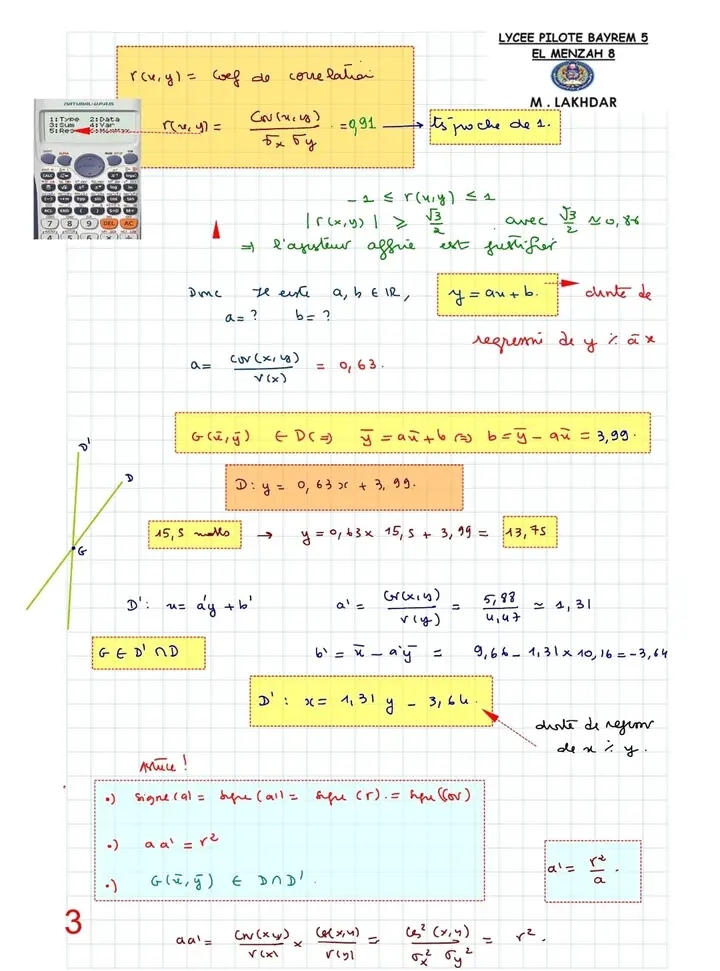 LYCEE PILOTE BAYREM 5
EL MENZAH 8
M. LAKHDAR
r(x,y) = Coef de correlation
NATURAL-V.P.A.M.
1:Type 2:Data
3:Sum 4:Var
5:Reg 6:MinMax
r(x,y) = Cov(x,y) / σx σy = 0,91 → ts proche de 1.
-1 ≤ r(x,y) ≤ 1
|r(x,y)| ≥ √3/2 . avec √3/2 ≃ 0,86
⇒ l'ajusteur affine est justifier
Donc Il existe a, b ∈ IR, y = ax + b. → droite de
a = ? b = ?
regression de y % à x
a = cov(x,y) / V(x) = 0,63.
G(x̄,ȳ) ∈ D(⇒) ȳ = ax̄ + b ⇔ b = ȳ - ax̄ = 3,99.
D'
D
G
D: y = 0,63x + 3,99.
15,5 → y = 0,63 x 15,5 + 3,99 = 13,75
D': x = a'y + b' a' = Cov(x,y) / V(y) = 5,88 / 4,47 ≃ 1,31
G ∈ D' ∩ D b' = x̄ - a'ȳ = 9,66 - 1,31 x 10,16 = -3,64
D': x = 1,31 y - 3,64.
droite de regression
de x % y.
Astuce!
•) signe(a) = signe(a') = signe(r) = signe(Cov)
•) aa' = r²
a' = r² / a .
•) G(x̄,ȳ) ∈ D ∩ D'.
3
aa' = Cov(x,y) / V(x) x Cov(x,y) / V(y) = Cov²(x,y) / σx² σy² = r².